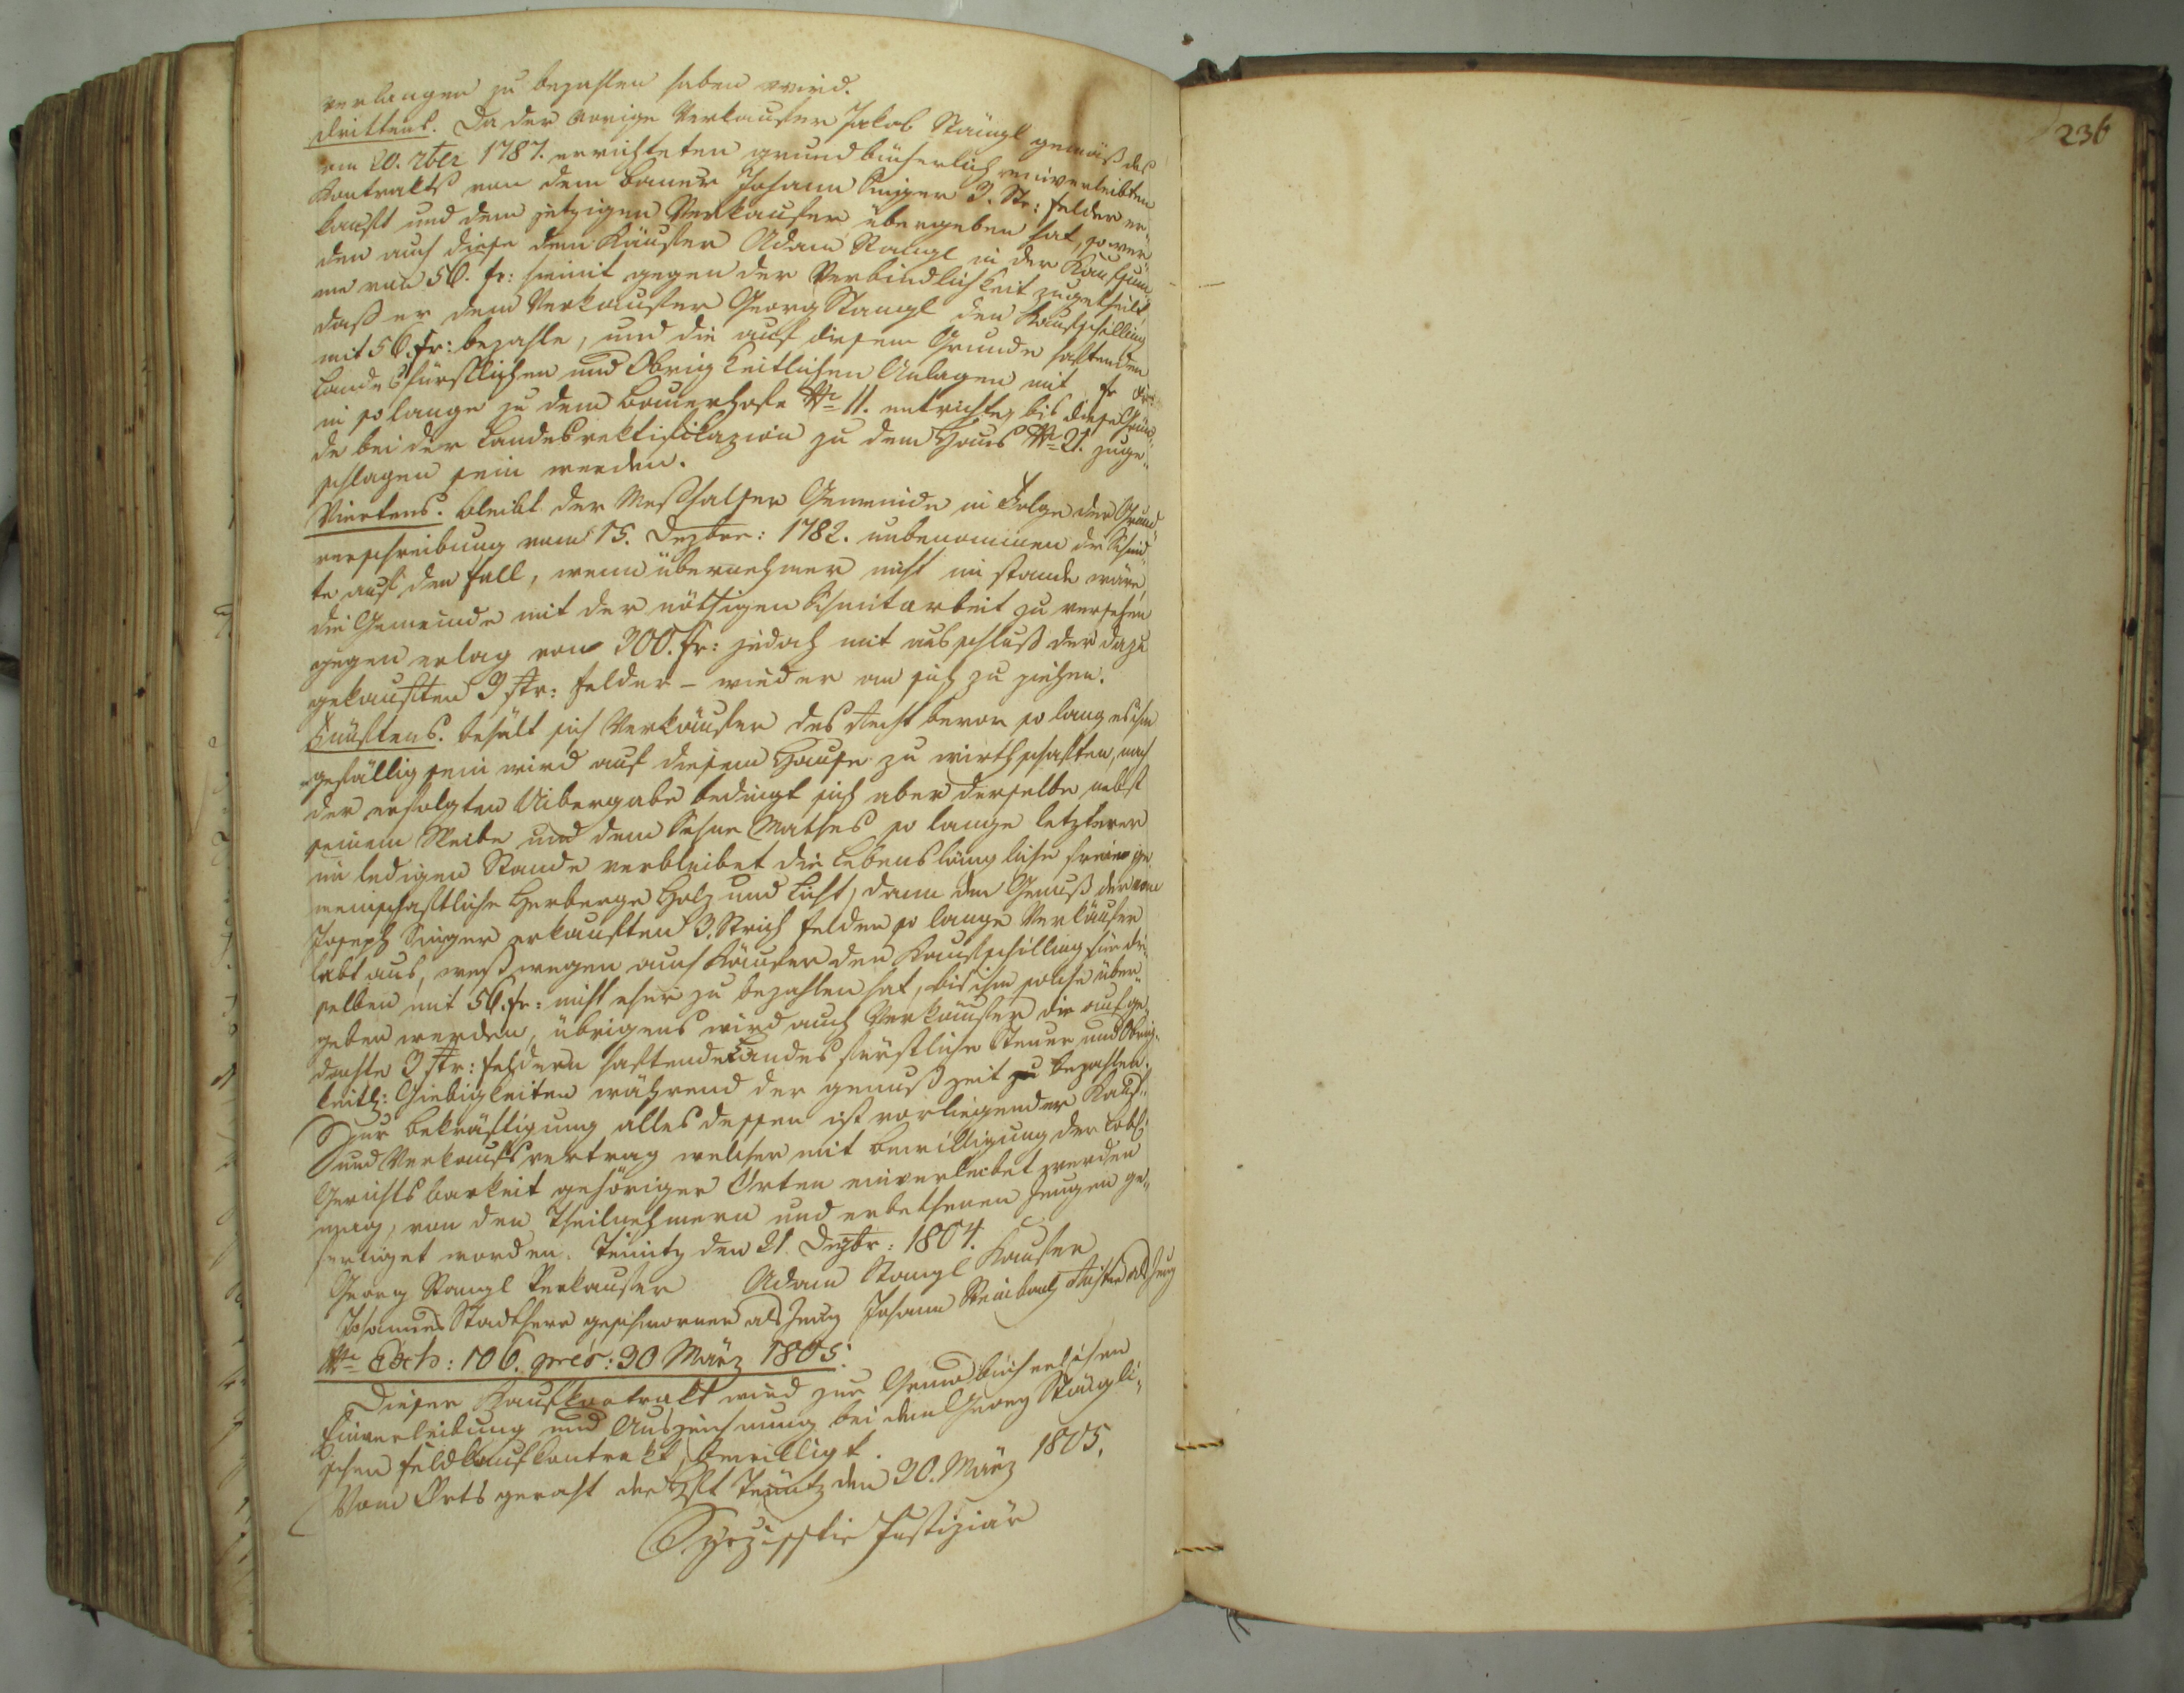 verlangen zu bezahlen haben wird.
Drittens. Da der vorige Verkaufer Jakob Stängl gemäß des
am 20. 7ber 1787. errichteten grundbücherlich einverleibten
Kontrakts von dem Bauer Johann Singer 3. Str: Felder er„
kauft und dem jetzigen Verkaufer übergeben hat, so wer„
den auch diese dem Käufer Adam Stangl in der Kaufsum„
me von 56. fr: hiemit gegen der Verbindlichkeit zugetheilt,
daß er dem Verkaufer Georg Stangl den Kaufschilling
mit 56 fr: bezahle, und die auf diesem Grunde haftenden
Landesfürstlichen und Obrigkeitlichen Anlagen mit fr
in so lange zu dem Bauerhofe Nr 11. entrichte, bis diese Grün„
de bei der Landesrektifikazion zu dem Haus Nr 21. zuge„
schlagen sein werden.
Viertens. bleibt der Gemeinde in Folge der Grund„
verschreibung vom 15. Dezber: 1782. unbenommen die Schmid„
te auf den Fall, wenn übernehmer nicht im stande wäre,
die Gemeinde mit der nöthigen Schmitarbeit zu versehen
gegen erlag von 300. fr: jedoch mit ausschluß der dazu
gekauften 3 Str: Felder – wieder an sich zu ziehen.
Fünftens. behält sich Verkäufer das Recht bevor so lang es ihm
gefällig sein wird auf diesem Hause zu wirthschaften, nach
der erfolgten Uibergabe bedingt sich aber derselbe nebst
seinem Weibe und dem Sohne Mathes so lange letzterer
im ledigen Stande verbleibet die Lebenslängliche freie ge„
meinschaftliche Herberge Holz und Licht, dann den Genuß der vom
Joseph Singer erkauften 3. Strich Felder so lange Verkäufer
lebt aus, weßwegen auch Käufer den Kaufschilling für die„
selben mit 56. fr: nicht eher zu bezahlen hat, bis ihm solche über„
geben werden, übrigens wird auch Verkäufer die auf ge„
dachte 3 Str: Feldern haftende Landesfürstliche Steuer und Obrig„
keitl: Giebigkeiten während der genußzeit zu bezahlen.
Zur Bekräftigung alles dessen ist vorliegender Kauf„
und Verkaufsvertrag welcher mit Bewilligung der Löbl:
Gerichtsbarkeit gehöriger Orten einverleibet werden
mag, von den Theilnehmern und erbethenen Zeugen ge„
fertiget worden. den 21. Dezbr: 1804.
Georg Stangl Verkaufer Adam Stangl Kaufer
Johannes Stadtherr geschworner als Zeug Johann Richter als Zeug
Nr Exh: 106. præs: 30 März 1805.
Dieser Kaufkontrakt wird zur Grundbücherlichen
Einverleibung und Auszeichnung bei dem Georg Stängli„
schen Feldkaufkontrakt, bewilligt.
Vom Ortsgericht der Hft den 30. März 1805.
Justiziär
236